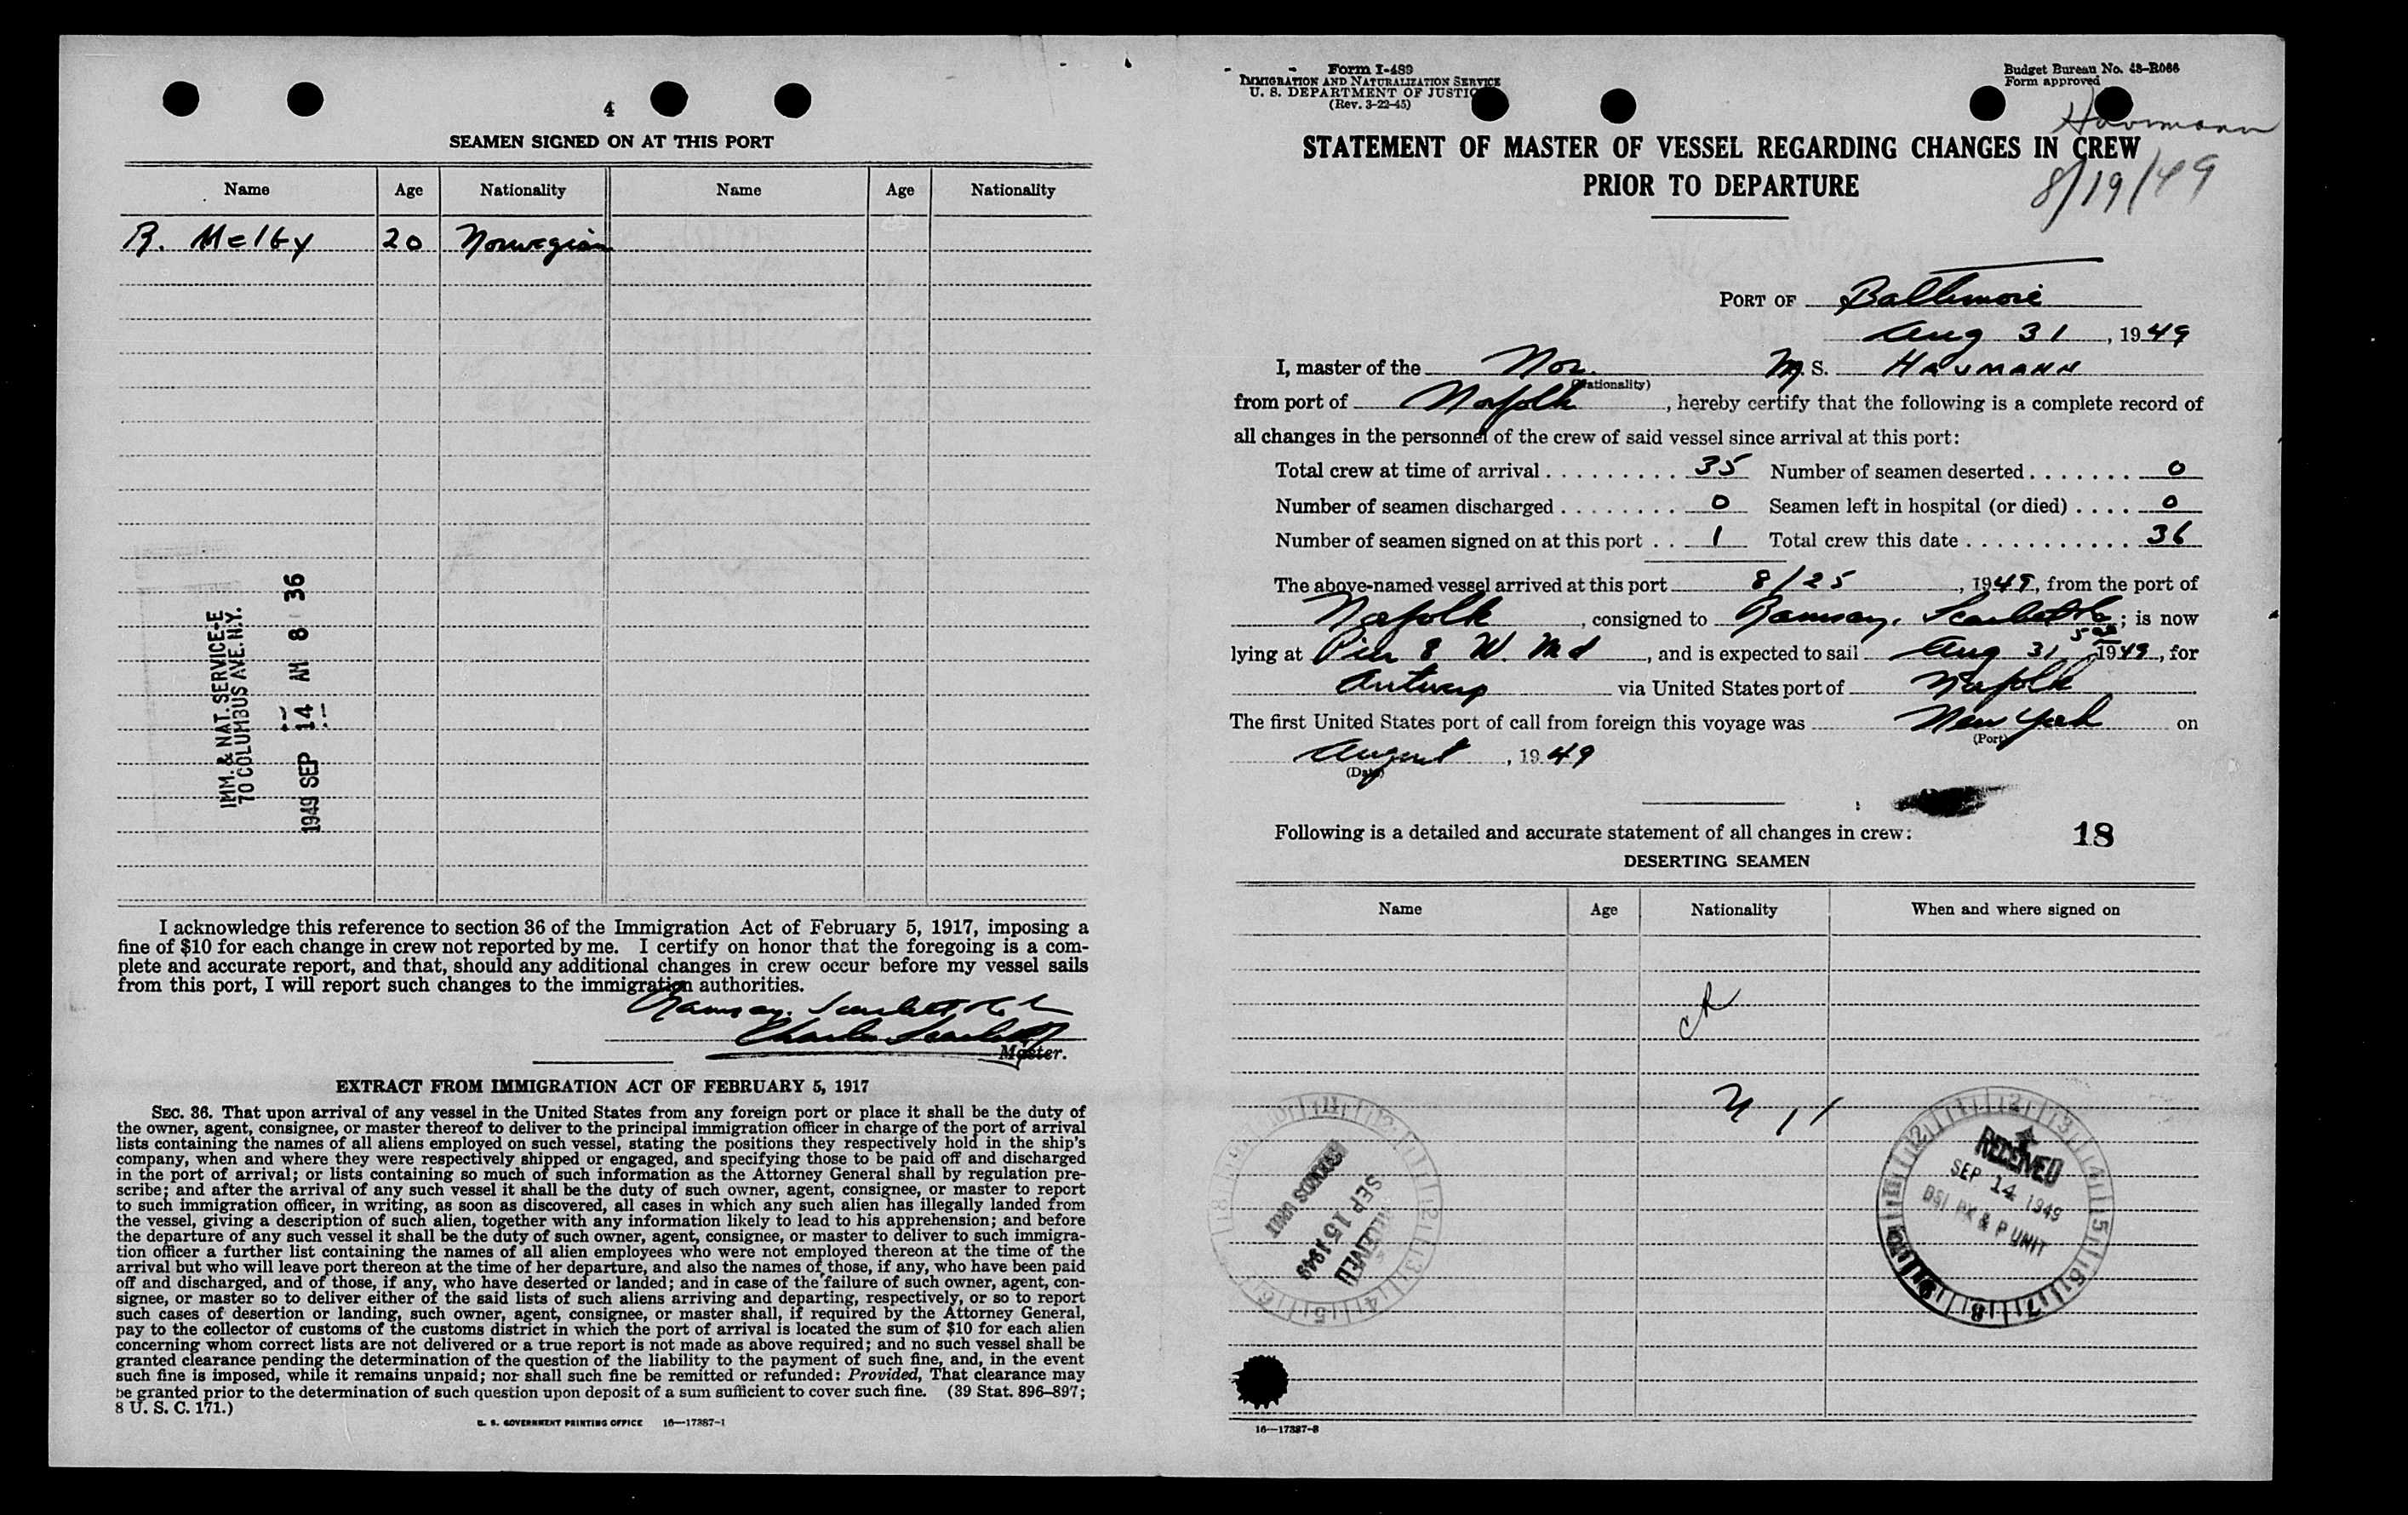 4
SEAMEN SIGNED ON AT THIS PORT
Name Age Nationality Name Age Nationality
R. Melby 20 Norwegian
IMM. & NAT. SERVICE-E
70 COLUMBUS AVE. N.Y.
1949 SEP 14 AM 8 36
I acknowledge this reference to section 36 of the Immigration Act of February 5, 1917, imposing a
fine of $10 for each change in crew not reported by me. I certify on honor that the foregoing is a com-
plete and accurate report, and that, should any additional changes in crew occur before my vessel sails
from this port, I will report such changes to the immigration authorities.
Ramsay, Scarlett & Co
Charles Scarlett
Master.
EXTRACT FROM IMMIGRATION ACT OF FEBRUARY 5, 1917
SEC. 36. That upon arrival of any vessel in the United States from any foreign port or place it shall be the duty of
the owner, agent, consignee, or master thereof to deliver to the principal immigration officer in charge of the port of arrival
lists containing the names of all aliens employed on such vessel, stating the positions they respectively hold in the ship's
company, when and where they were respectively shipped or engaged, and specifying those to be paid off and discharged
in the port of arrival; or lists containing so much of such information as the Attorney General shall by regulation pre-
scribe; and after the arrival of any such vessel it shall be the duty of such owner, agent, consignee, or master to report
to such immigration officer, in writing, as soon as discovered, all cases in which any such alien has illegally landed from
the vessel, giving a description of such alien, together with any information likely to lead to his apprehension; and before
the departure of any such vessel it shall be the duty of such owner, agent, consignee, or master to deliver to such immigra-
tion officer a further list containing the names of all alien employees who were not employed thereon at the time of the
arrival but who will leave port thereon at the time of her departure, and also the names of those, if any, who have been paid
off and discharged, and of those, if any, who have deserted or landed; and in case of the failure of such owner, agent, con-
signee, or master so to deliver either of the said lists of such aliens arriving and departing, respectively, or so to report
such cases of desertion or landing, such owner, agent, consignee, or master shall, if required by the Attorney General,
pay to the collector of customs of the customs district in which the port of arrival is located the sum of $10 for each alien
concerning whom correct lists are not delivered or a true report is not made as above required; and no such vessel shall be
granted clearance pending the determination of the question of the liability to the payment of such fine, and, in the event
such fine is imposed, while it remains unpaid; nor shall such fine be remitted or refunded: Provided, That clearance may
be granted prior to the determination of such question upon deposit of a sum sufficient to cover such fine. (39 Stat. 896–897;
8 U. S. C. 171.)
U. S. GOVERNMENT PRINTING OFFICE 16—17387-1
Form I-489
IMMIGRATION AND NATURALIZATION SERVICE
U. S. DEPARTMENT OF JUSTICE
(Rev. 3-22-45)
Budget Bureau No. 43-R066
Form approved
Havmann
8/19/49
STATEMENT OF MASTER OF VESSEL REGARDING CHANGES IN CREW
PRIOR TO DEPARTURE
PORT OF Baltimore
Aug 31, 1949
I, master of the Nor. M. S. HAVMANN
(Nationality)
from port of Norfolk, hereby certify that the following is a complete record of
all changes in the personnel of the crew of said vessel since arrival at this port:
Total crew at time of arrival 35 Number of seamen deserted 0
Number of seamen discharged 0 Seamen left in hospital (or died) 0
Number of seamen signed on at this port 1 Total crew this date 36
The above-named vessel arrived at this port 8/25, 1949, from the port of
Norfolk, consigned to Ramsay, Scarlett & Co; is now
lying at Pier 8 W. Md, and is expected to sail Aug 31, 1949, for
Antwerp via United States port of Norfolk
The first United States port of call from foreign this voyage was New York on
(Port)
August, 1949
(Date)
Following is a detailed and accurate statement of all changes in crew: 18
DESERTING SEAMEN
Name Age Nationality When and where signed on
RECORDS UNIT
SEP 15 1949
RECEIVED
RECEIVED
SEP 14 1949
DSI PX & P UNIT
16—17387-3